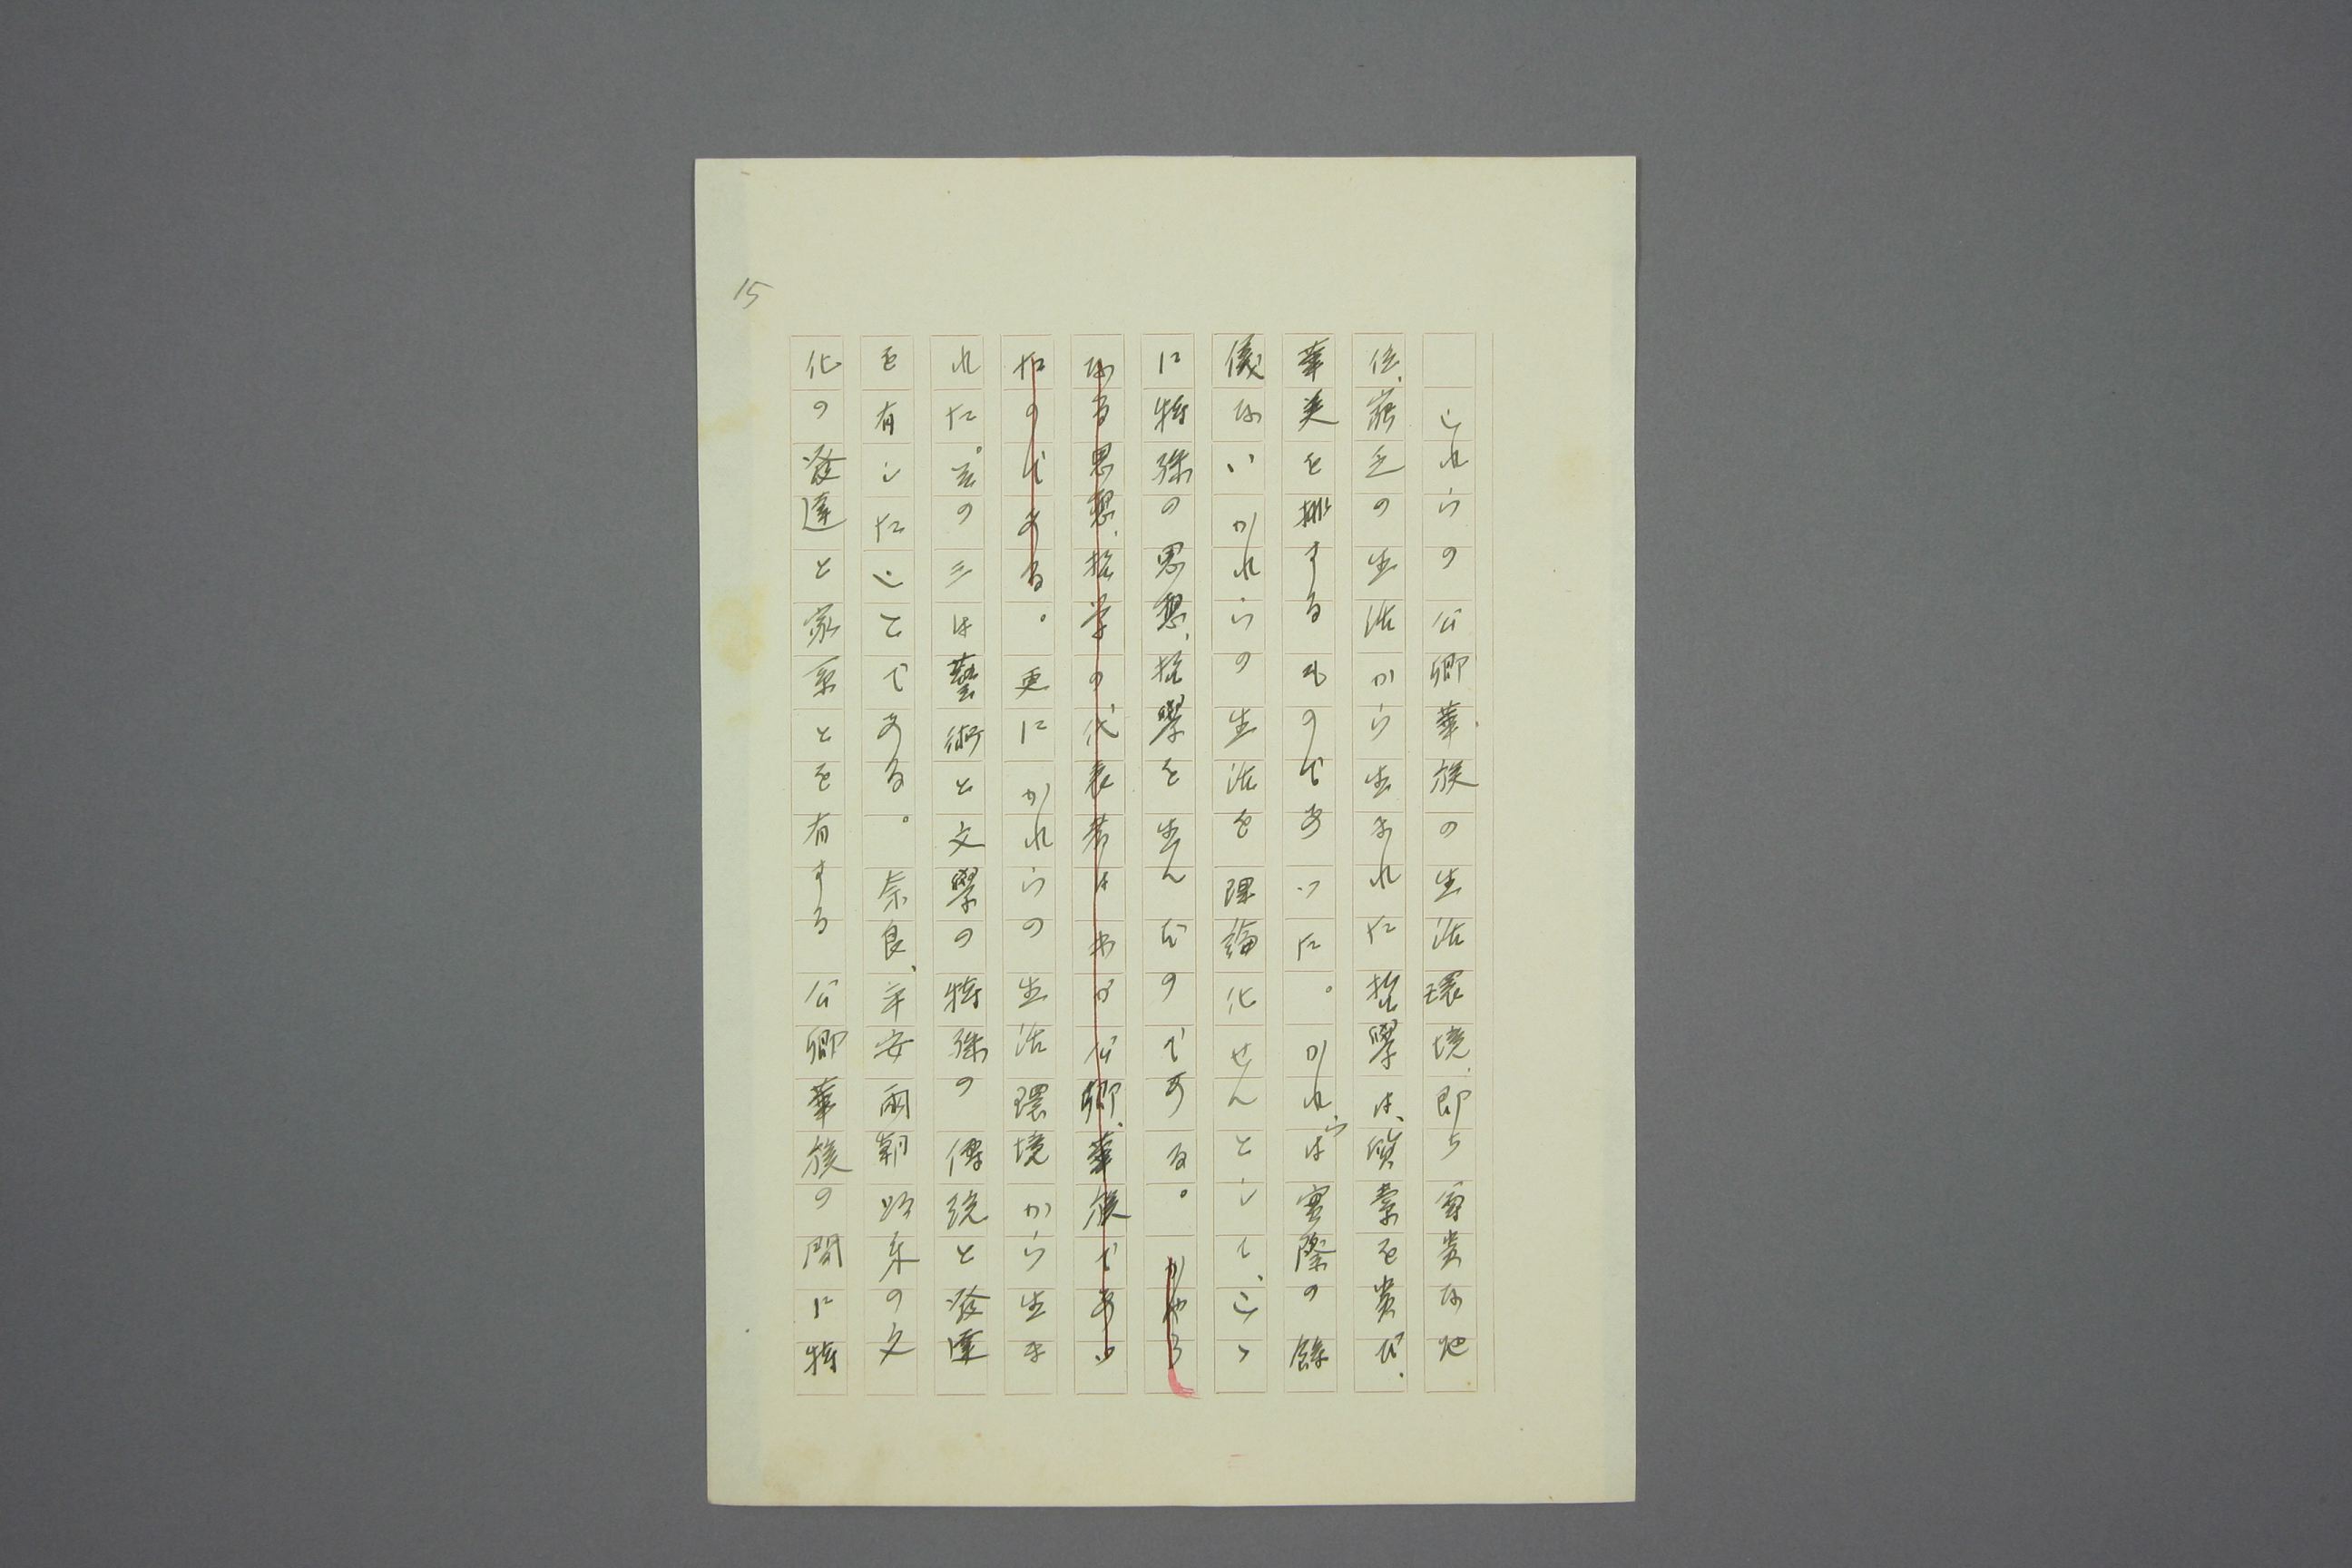 15
これらの公卿華族の生活環境、即ち尊貴な地
位、窮乏の生活から生まれた哲學は、質素を貴び、
華美を排するものであつた。かれらは實際の餘
儀ないかれらの生活を理論化せんとして、こゝ
に特殊の思想、哲學を生んだのである。かゝる
なる思想、哲学の代表者はわが公卿、華族であつ
たのである。更にかれらの生活環境から生ま
れた。その三は藝術と文學の特殊の傳統と發達
を有したことである。奈良、平安兩朝以来の文
化の發達と家系とを有する公卿華族の間に特